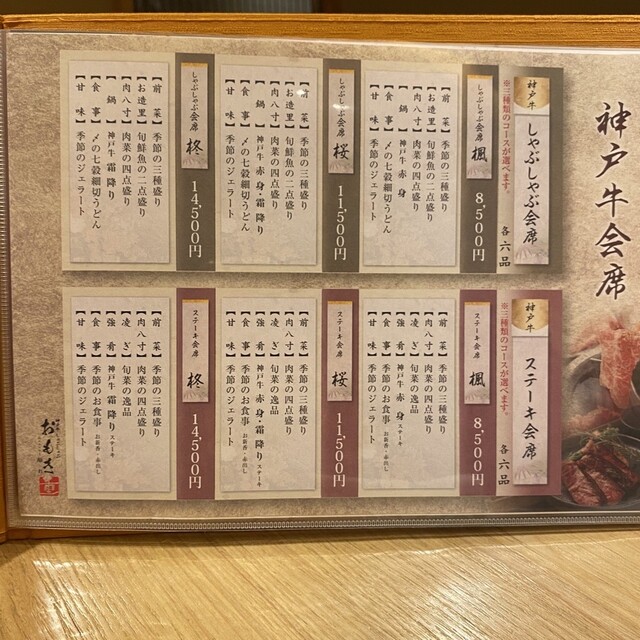 神戸牛会席
神戸牛
しゃぶしゃぶ会席
※三種類のコースが選べます。
各六品
しゃぶしゃぶ会席 楓
8,500円
【前菜】季節の三種盛り
【お造里】旬鮮魚の二点盛り
【肉八寸】肉菜の四点盛り
【鍋】神戸牛 赤身
【食事】〆の七穀細切うどん
【甘味】季節のジェラート
しゃぶしゃぶ会席 桜
11,500円
【前菜】季節の三種盛り
【お造里】旬鮮魚の二点盛り
【肉八寸】肉菜の四点盛り
【鍋】神戸牛 赤身・霜降り
【食事】〆の七穀細切うどん
【甘味】季節のジェラート
しゃぶしゃぶ会席 柊
14,500円
【前菜】季節の三種盛り
【お造里】旬鮮魚の二点盛り
【肉八寸】肉菜の四点盛り
【鍋】神戸牛 霜降り
【食事】〆の七穀細切うどん
【甘味】季節のジェラート
神戸牛
ステーキ会席
※三種類のコースが選べます。
各六品
ステーキ会席 楓
8,500円
【前菜】季節の三種盛り
【肉八寸】肉菜の四点盛り
【凌ぎ】旬菜の逸品
【強肴】神戸牛 赤身ステーキ
【食事】季節のお食事 お新香・赤出し
【甘味】季節のジェラート
ステーキ会席 桜
11,500円
【前菜】季節の三種盛り
【肉八寸】肉菜の四点盛り
【凌ぎ】旬菜の逸品
【強肴】神戸牛 赤身・霜降りステーキ
【食事】季節のお食事 お新香・赤出し
【甘味】季節のジェラート
ステーキ会席 柊
14,500円
【前菜】季節の三種盛り
【肉八寸】肉菜の四点盛り
【凌ぎ】旬菜の逸品
【強肴】神戸牛 霜降りステーキ
【食事】季節のお食事 お新香・赤出し
【甘味】季節のジェラート